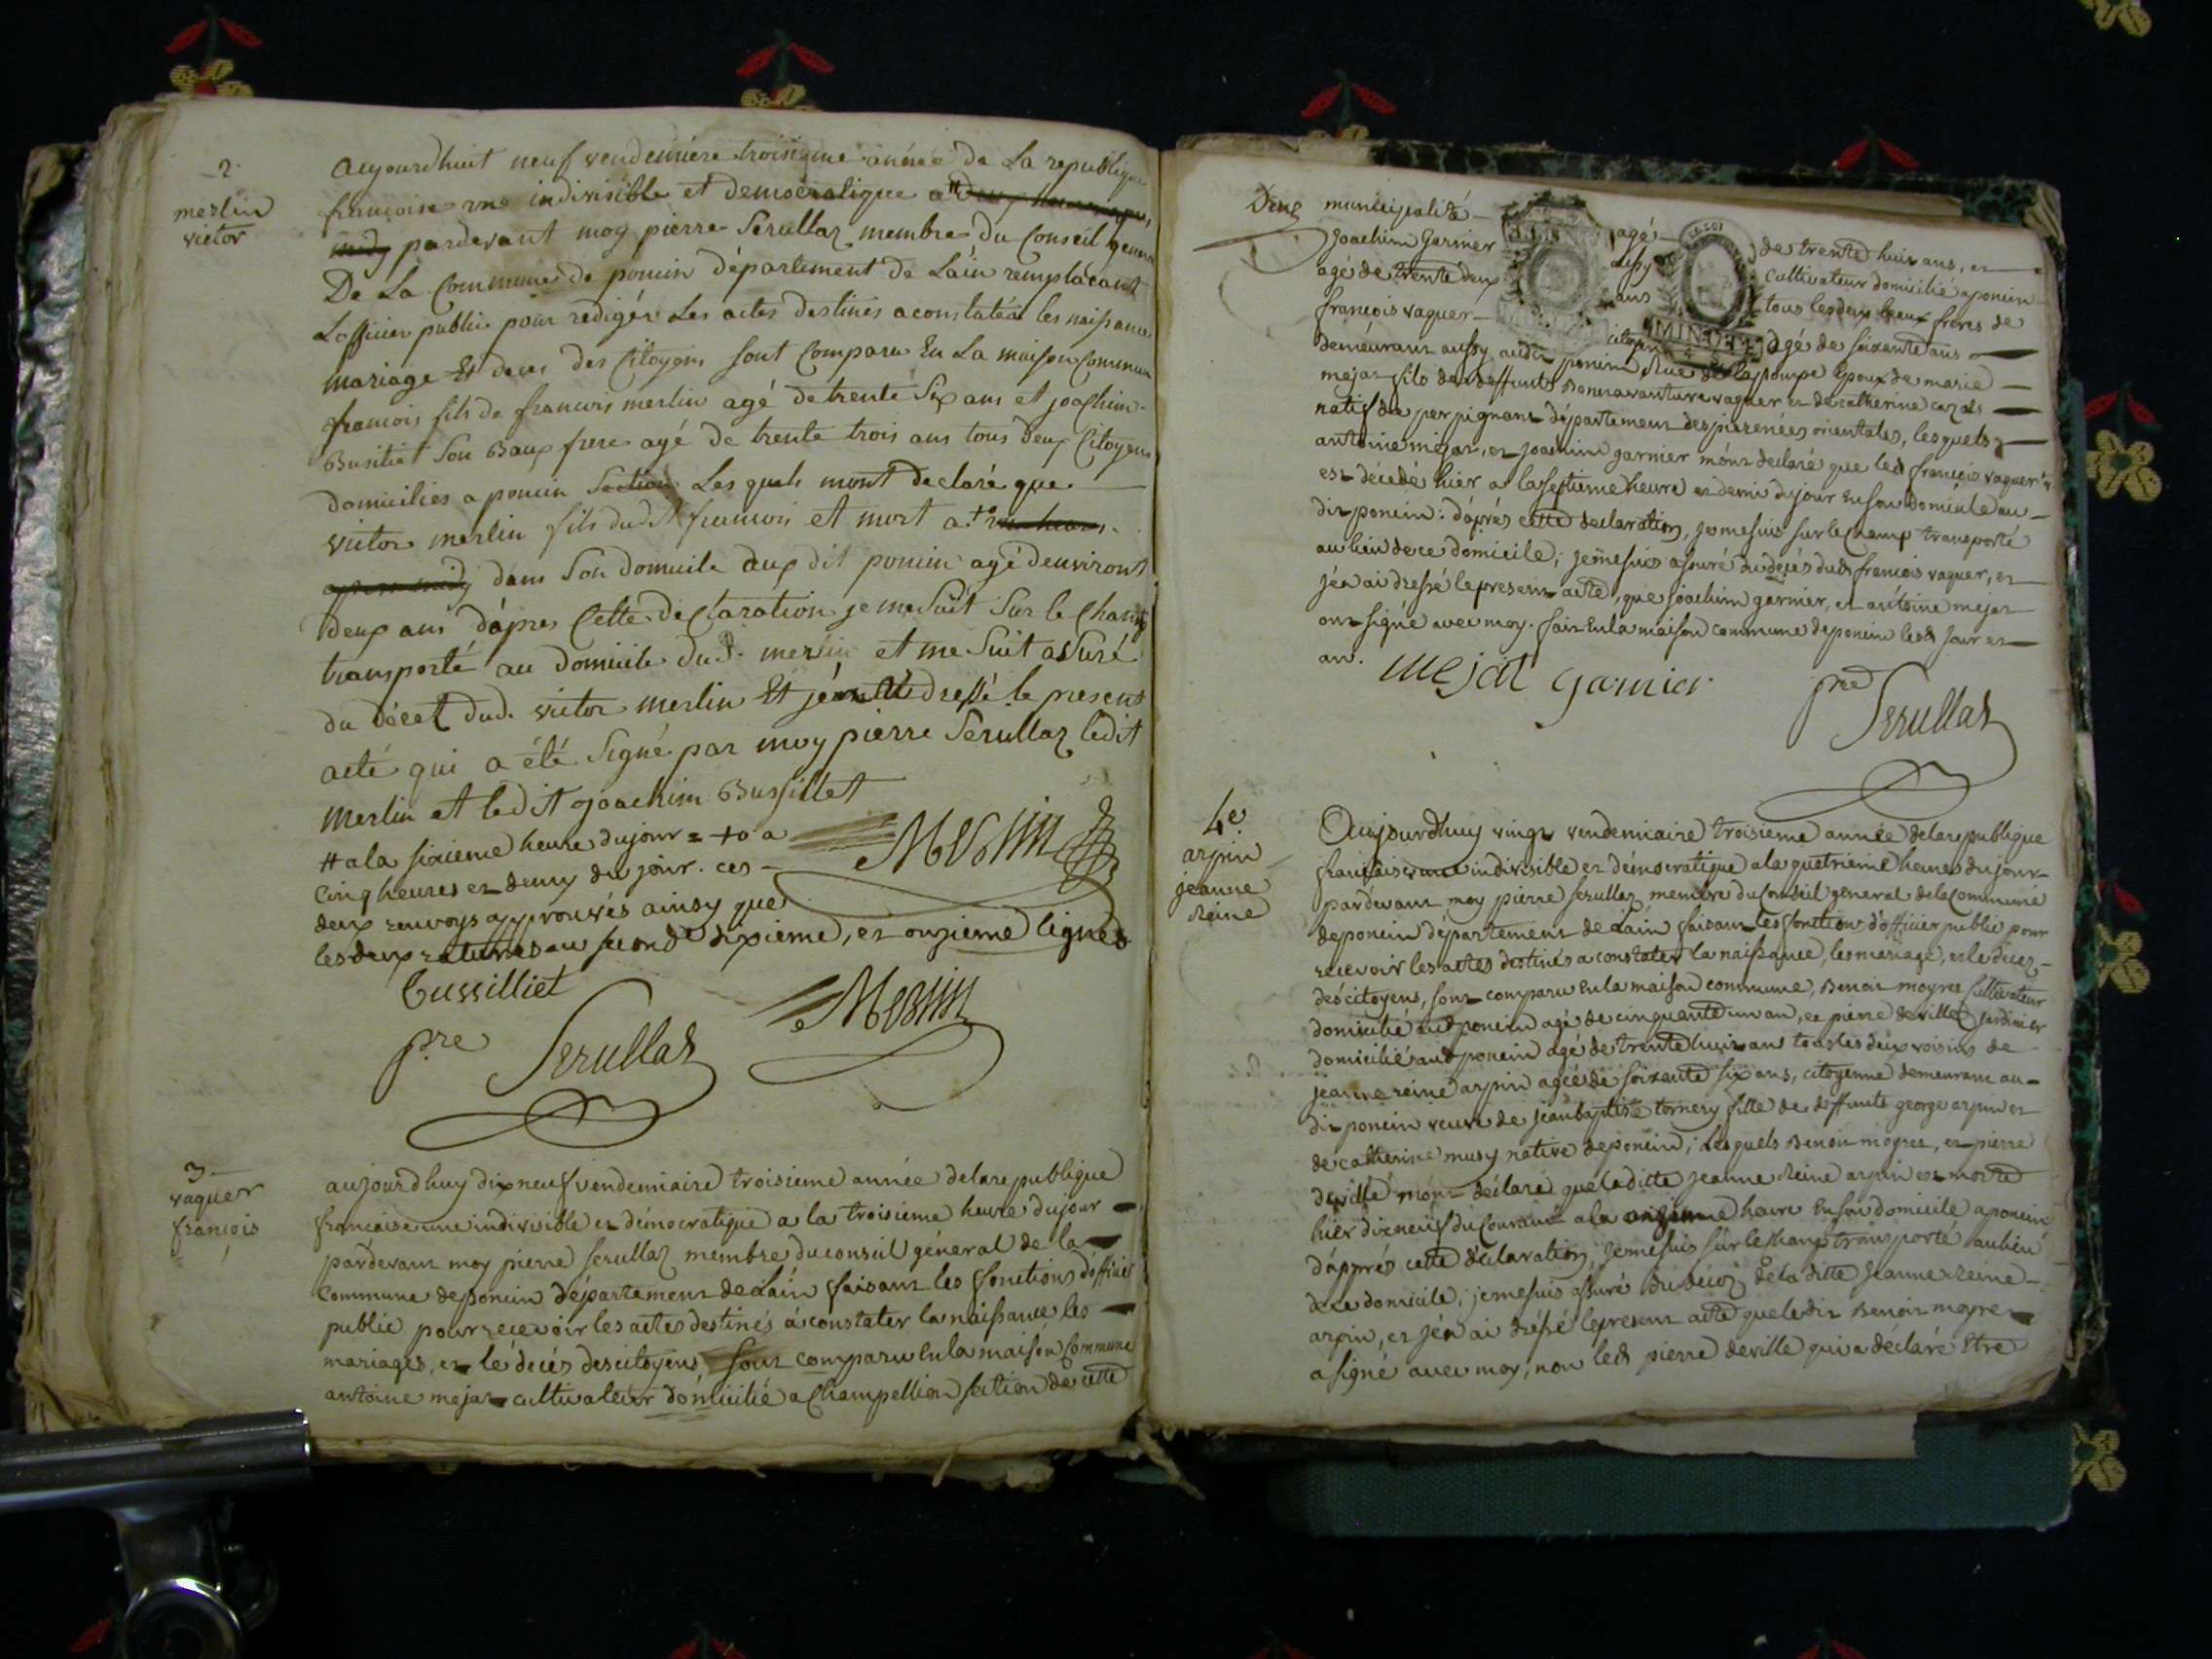 2.
merlin
victor
aujourdhuit neuf vendemiere troisieme année de La republique
françoise une indivisible et democratique a # deux heures apres
midy pardevant moy pierre Serullaz membre du Conseil general
De La Commune de poncin département de Lain remplacant
Lofficier public pour redigér Les actes destinés a constatér les naissance
mariage Et deces des Citoyens sont Comparu En La maison Commune
francois fils de francois merlin agé de trente Six ans et joachim
Bussiliet Son Baux frere agé de trente trois ans tous deux Citoyens
domicilies a poncin Section Les quels mont declaré que
victor merlin fils dudit francois et mort a +o
apres midy dans Son domicile aux dit poncin agé denviront
deux ans dápres Cette declaration je me Suit Sur le Champ
transporté au domicile dud. merlin et me Suit assuré
du décet dud. victor merlin Et jén ai dressé le present
acté qui a été Signé par moy pierre Serullaz ledit
Merlin et ledit joachim Bussillet
# a la sixieme heure du jour = +o a
cinq heures et demy du jour. ces
deux renvoys approuvés ainsy que
les deux ratures au second dixieme, et onzieme lignes
Merlin
bussilliet
Merlin
pre Serullaz
3
vaquer
françois
aujourdhuy dix neuf vendemiaire troisieme année de la republique
francaise une indivisible et démocratique a la troisieme heure du jour
pardevant moy pierre serullaz membre du conseil général de la
Commune de poncin département de Lain faisant les fonctions dófficier
public pour recevoir les actes destinés á constater la naissance les
mariages, et lé decés des citoyens sont comparu en la maison Commune
antoine mejat cultivateur domicilié a Champellion section de cette
Deux
municipalité agé de trente huit ans, et
Joachim Garnier aussy cultivateur domicilié a poncin
agé de trente deux ans tous les deux beaux freres de
françois vaquer citoyen agé de soixante ans
demeurant aussy audit poncin Rue de la poupe Epoux de marie
mejat fils de deffunts Bonnavanture vaquer et de catherine cazals
natif de perpignant département des pirenées orientales, lesquels
antoine mejat, et joachim garnier mónt declaré que led françois vaquer
est décédé hier a la septieme heure et demi du jour en son domicile au
dit poncin: dáprés cette declaration, je me suis sur le Champ transporté
au lieu de ce domicile; je me suis assuré du decés dud francois vaquer, et
jén ai dressé le present acte, que joachim garnier, et antoine mejat
ont signé avec moy. fait en la maison commune de poncin led jour et
an.
mejat garnier pre Serullaz
4e
arpin
jeanne
Reine
Aujourdhuy vingt vendemiaire troisieme année de la republique
francaise une indivisible et démocratique a la quatrieme heure du jour
pardevant moy pierre serullaz membre du Conseil general de la Commune
de poncin département de Lain faisant les fonctions d'officier public pour
recevoir les actes destinés a constater la naissance, les mariage, et le décez
des citoyens, sont comparu en la maison commune, Benoit moyret Cultivateur
domicilié aud poncin agé de cinquante un an, et pierre deville jardinier
domicilié aud poncin agé de trente huit ans tous les deux voisins de
jeanne reine arpin ageé de soixante six ans, citoyenne demeurant au
dit poncin veuve de jean baptiste tornery fille de deffunts george arpin et
de catherine musy native de poncin; Lesquels Benoit moyret, et pierre
deville mónt déclaré que laditte jeanne Reine arpin est morte
hier dix neuf du Courant a la onzieme heure En son domicile a poncin
dápprés cette déclaration, je me suis sur le champ transporté au lieu
de ce domicile; je me suis assuré du décez de la ditte Jeanne reine
arpin, et jén ai dréssé le present acte que ledit Benoit moyret
a signé avec moy, non led pierre deville qui a déclaré Etre